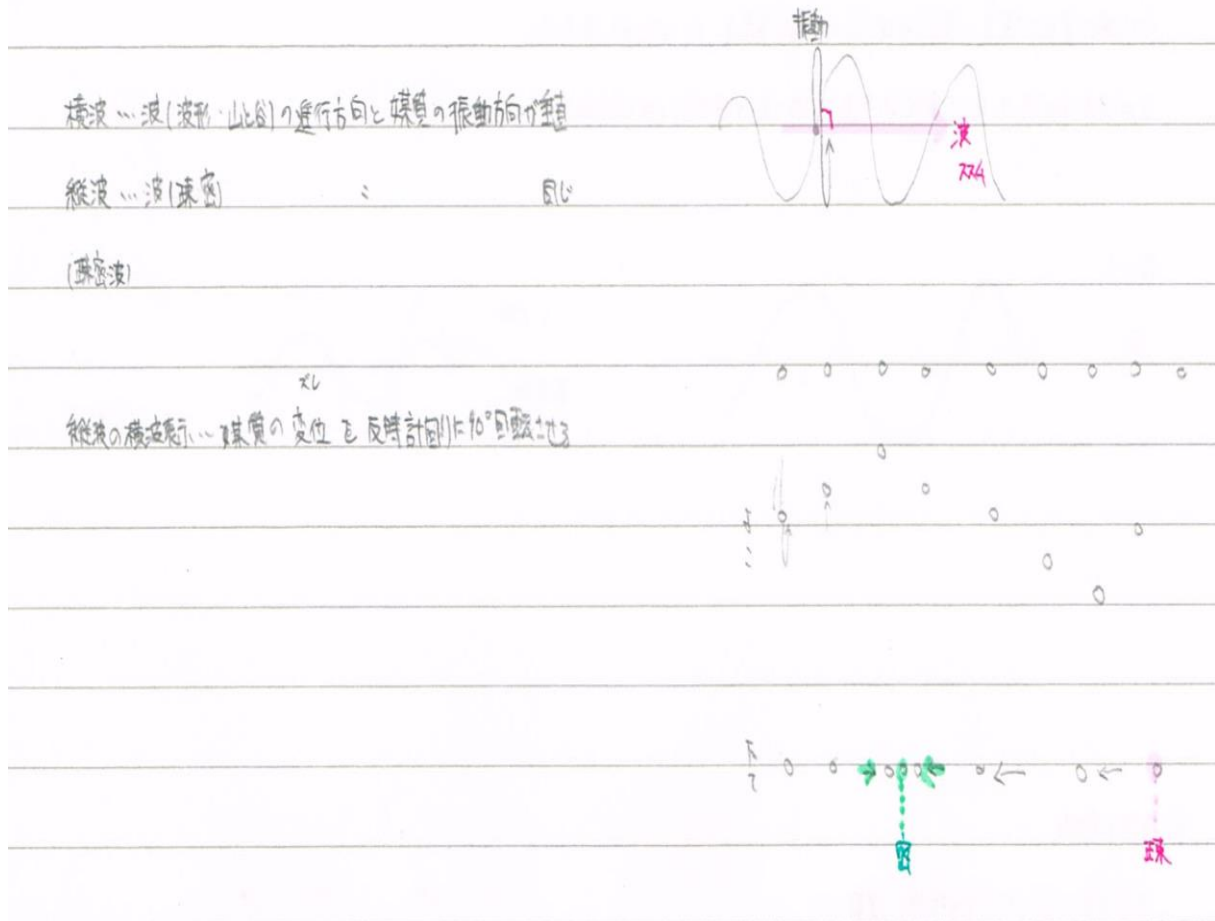 振動
横波…波(波形・山と谷)の進行方向と媒質の振動方向が垂直
波
ススム
縦波…波(疎密) 〃 同じ
(疎密波)
ズレ
縦波の横波表示…媒質の変位を反時計回りに90°回転させる
よこ
たて
密
疎